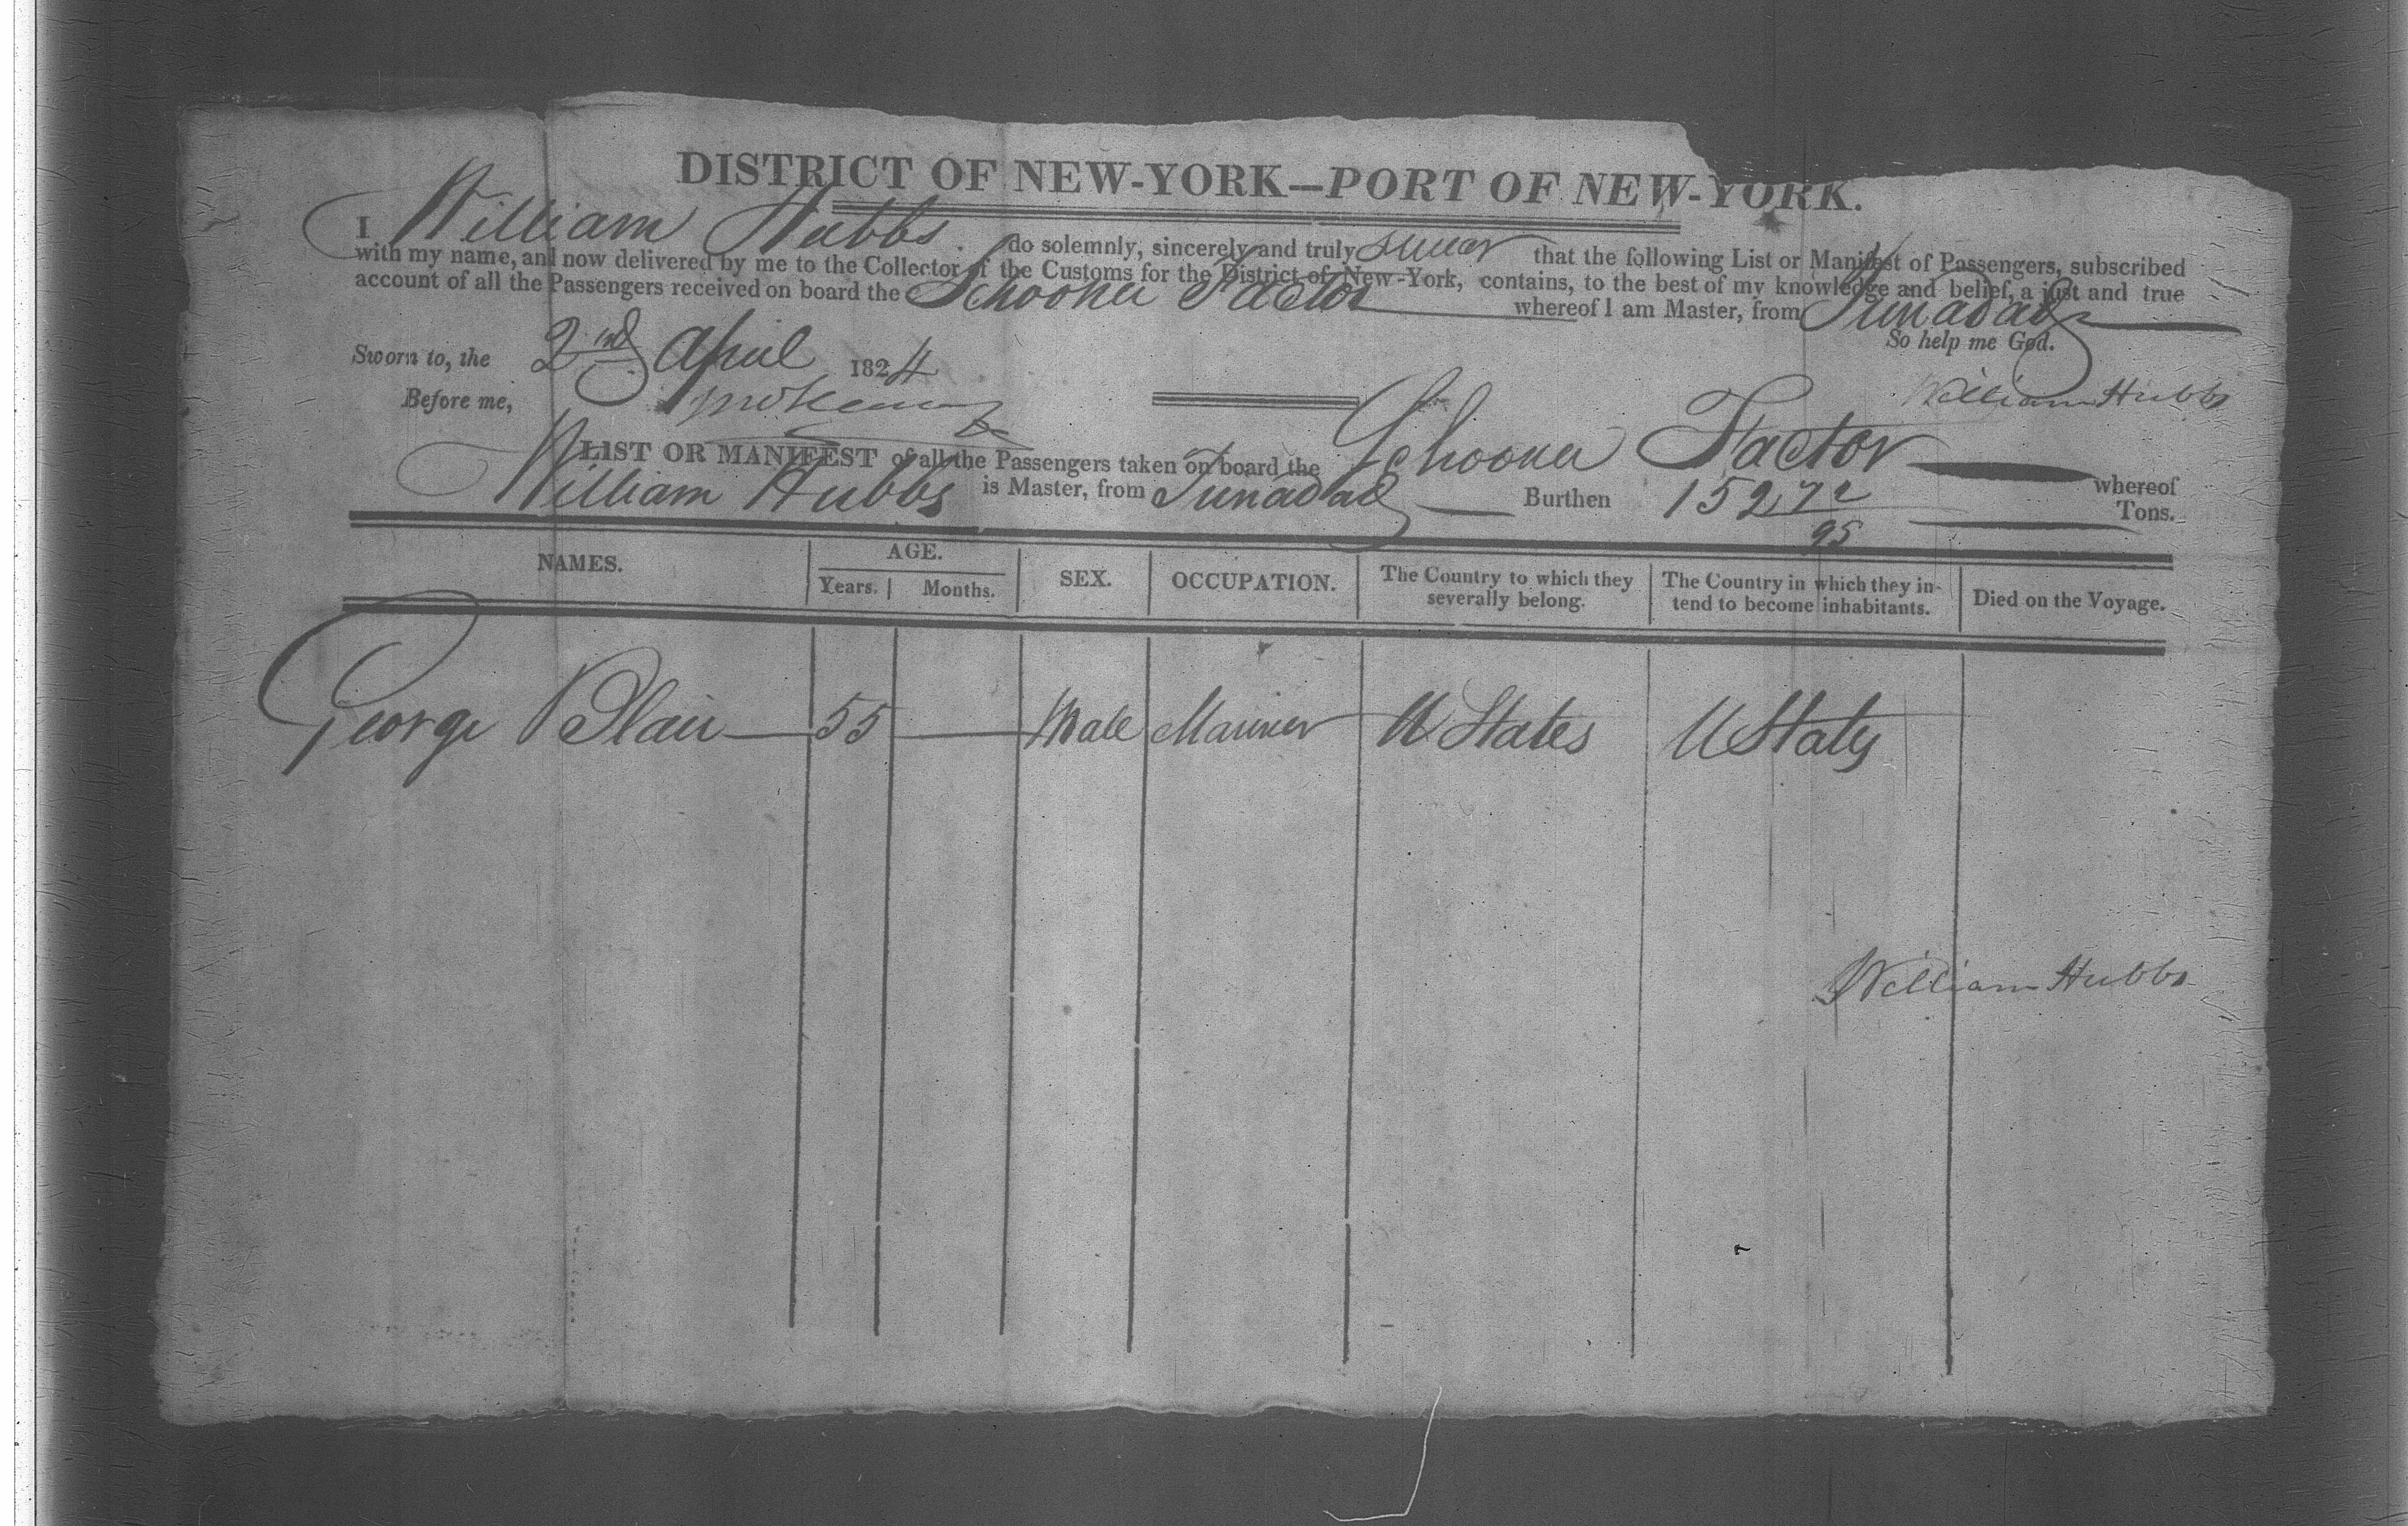 DISTRICT OF NEW-YORK—PORT OF NEW-YORK.
I William Hubbs do solemnly, sincerely and truly swear that the following List or Manifest of Passengers, subscribed
with my name, and now delivered by me to the Collector of the Customs for the District of New-York, contains, to the best of my knowledge and belief, a just and true
account of all the Passengers received on board the Schooner Factor whereof I am Master, from Trinadad
So help me God.
Sworn to, the 2nd April 1824
William Hubbs
Before me,
LIST OR MANIFEST of all the Passengers taken on board the Schooner Factor whereof
William Hubbs is Master, from Trinadad Burthen 152 72/95 Tons.
NAMES. AGE. SEX. OCCUPATION. The Country to which they severally belong. The Country in which they intend to become inhabitants. Died on the Voyage.
Years. Months.
George Blair 55 Male Mariner U States U States
William Hubbs